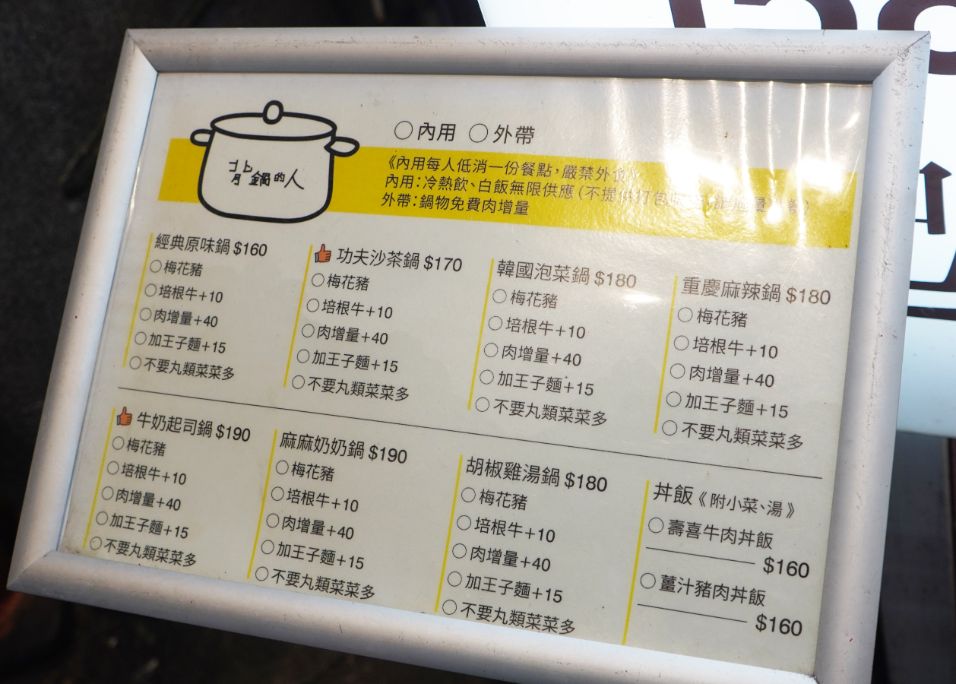 背鍋的人
○內用 ○外帶
《內用每人低消一份餐點,嚴禁外食》
內用:冷熱飲、白飯無限供應(不提供打包
外帶:鍋物免費肉增量
經典原味鍋 $160
○梅花豬
○培根牛+10
○肉增量+40
○加王子麵+15
○不要丸類菜菜多
功夫沙茶鍋 $170
○梅花豬
○培根牛+10
○肉增量+40
○加王子麵+15
○不要丸類菜菜多
韓國泡菜鍋 $180
○梅花豬
○培根牛+10
○肉增量+40
○加王子麵+15
○不要丸類菜菜多
重慶麻辣鍋 $180
○梅花豬
○培根牛+10
○肉增量+40
○加王子麵+15
○不要丸類菜菜多
牛奶起司鍋 $190
○梅花豬
○培根牛+10
○肉增量+40
○加王子麵+15
○不要丸類菜菜多
麻麻奶奶鍋 $190
○梅花豬
○培根牛+10
○肉增量+40
○加王子麵+15
○不要丸類菜菜多
胡椒雞湯鍋 $180
○梅花豬
○培根牛+10
○肉增量+40
○加王子麵+15
○不要丸類菜菜多
丼飯《附小菜、湯》
○壽喜牛肉丼飯
$160
○薑汁豬肉丼飯
$160